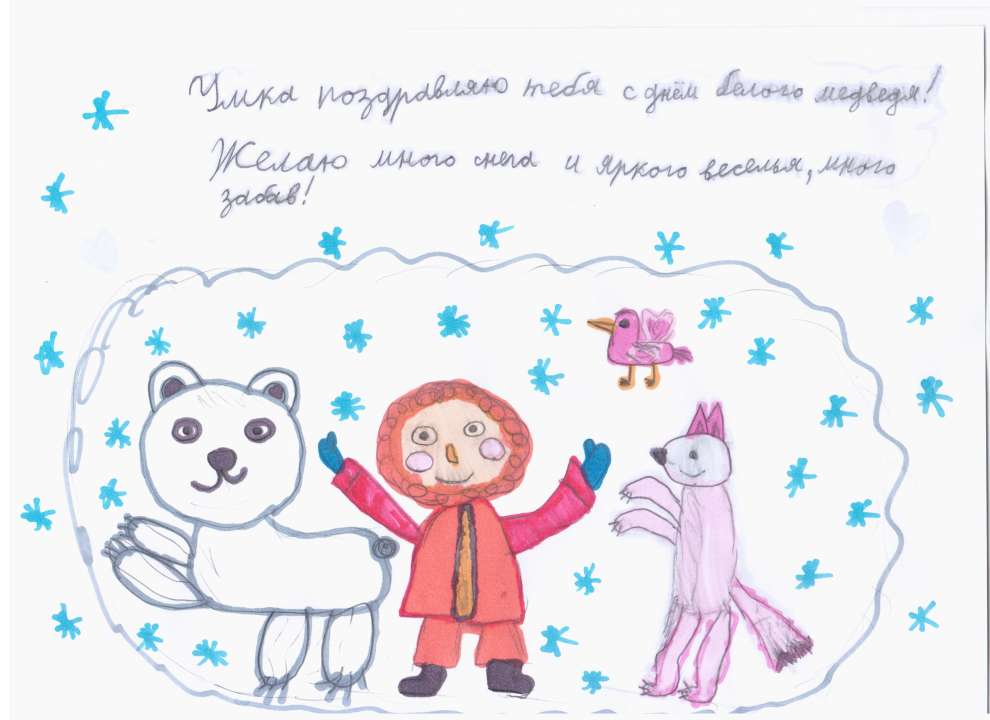 Умка поздравляю тебя с днём белого медведя!
Желаю много снега и яркого веселья, много
забав!